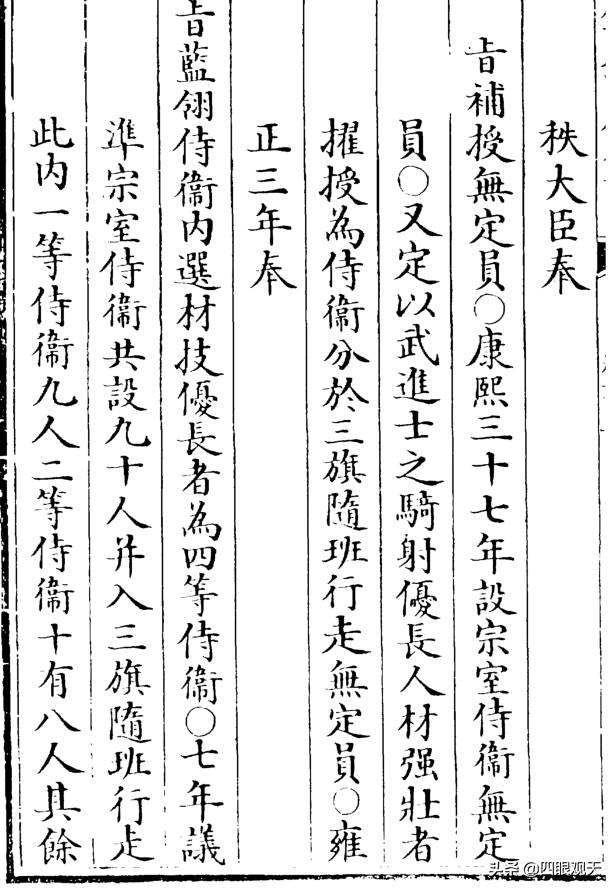 秩大臣奉
旨補授無定員○康熙三十七年設宗室侍衞無定
員○又定以武進士之騎射優長人材强壯者
擢授為侍衞分於三旗隨班行走無定員○雍
正三年奉
旨藍翎侍衞内選材技優長者為四等侍衞○七年議
準宗室侍衞共設九十人并入三旗隨班行走
此内一等侍衞九人二等侍衞十有八人其餘
头条 @四眼观天